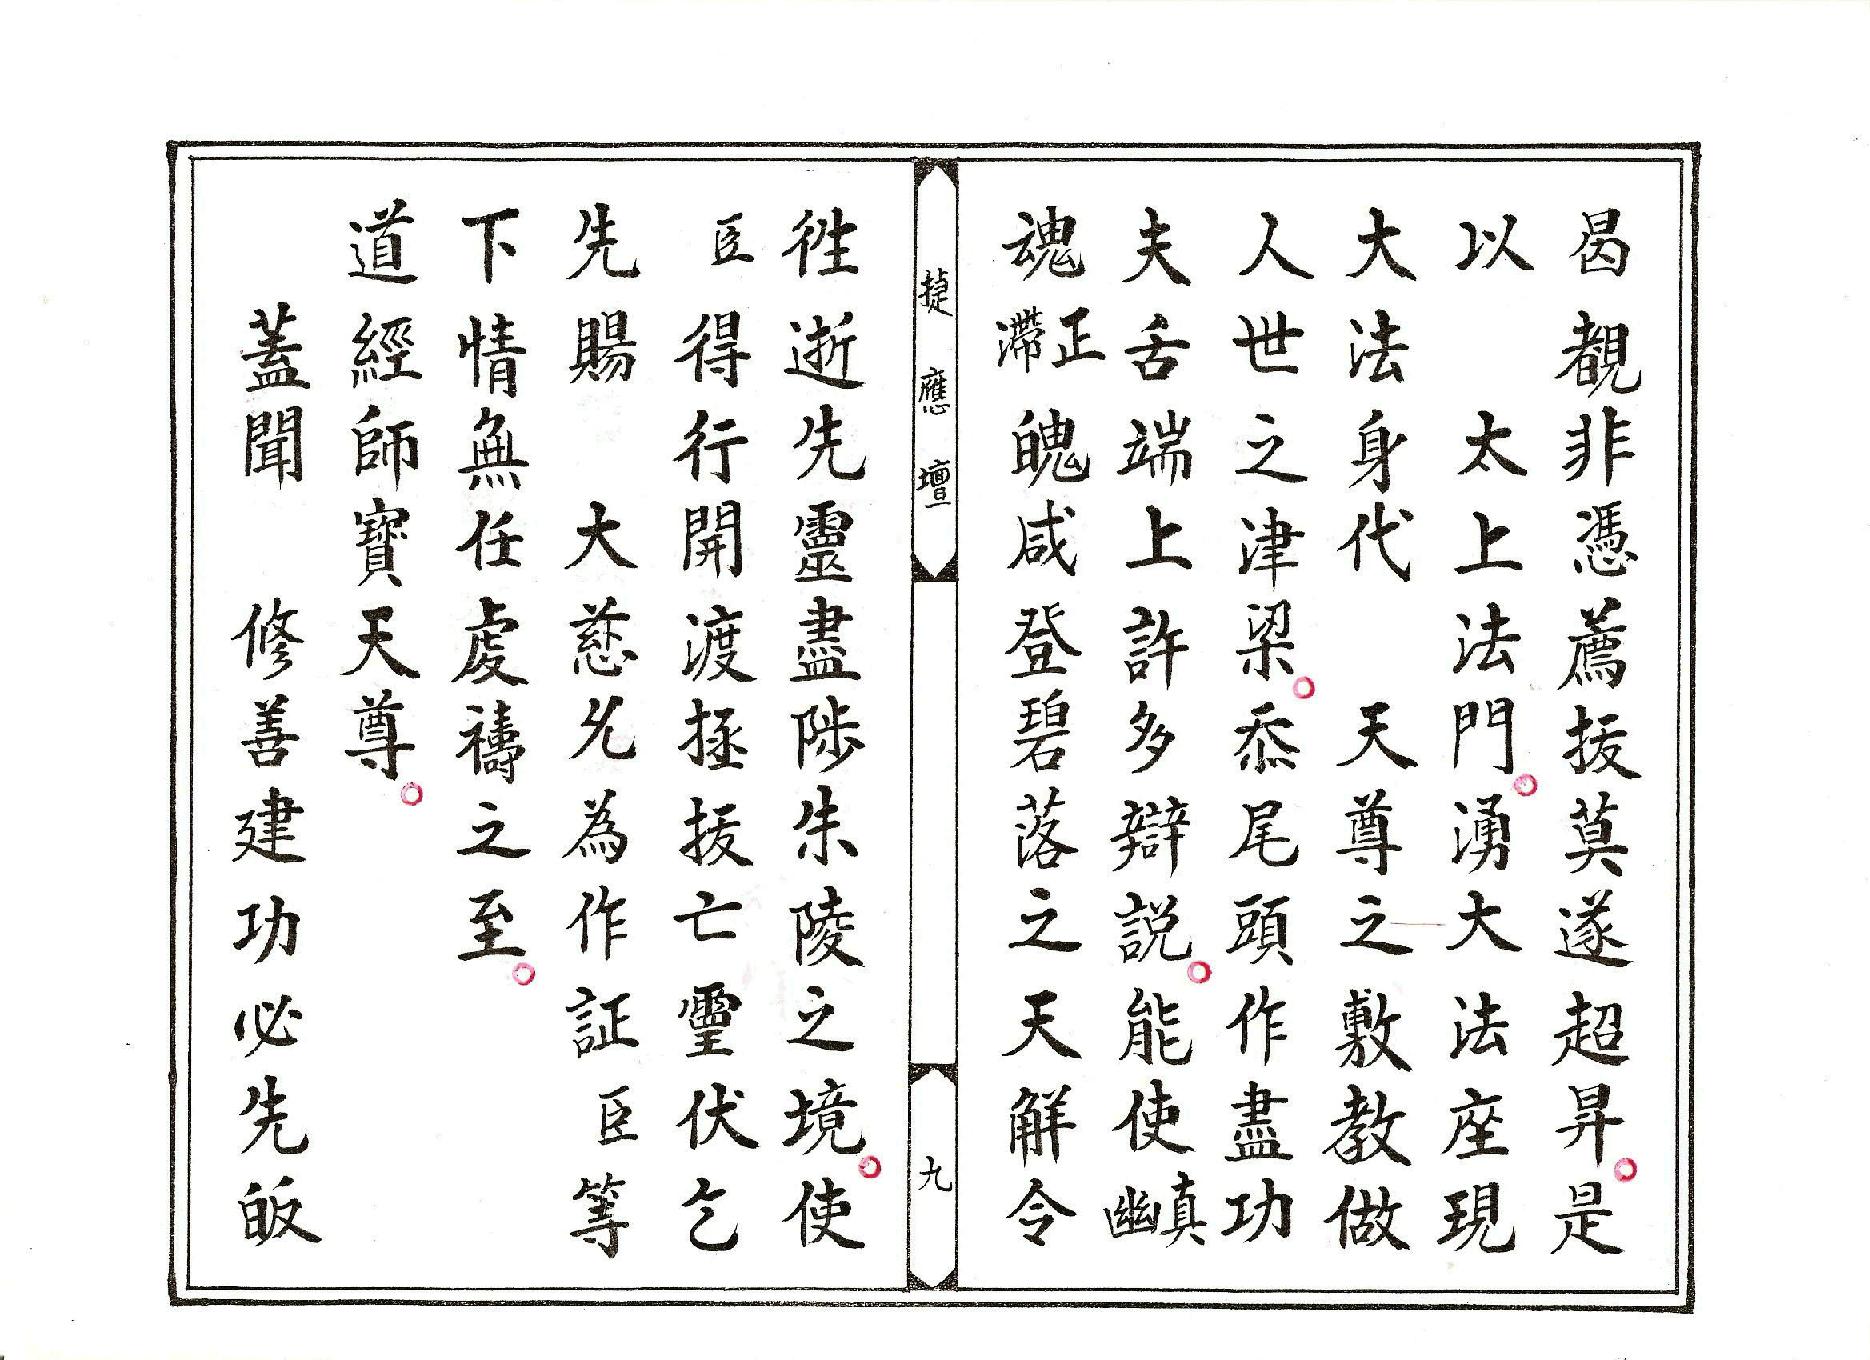 曷覩非憑薦拔莫遂超昇。是
以 太上法門。湧大法座現
大法身代 天尊之敷教做
人世之津梁。忝尾頭作盡功
夫舌端上許多辯説。能使真幽
魂正滯魄咸登碧落之天解令
徃逝先靈盡陟朱陵之境。使
臣得行開渡拯拔亡靈伏乞
先賜 大慈允為作証臣等
下情無任虔禱之至。
道經師寶天尊。
蓋聞 修善建功必先皈
捷應壇
九